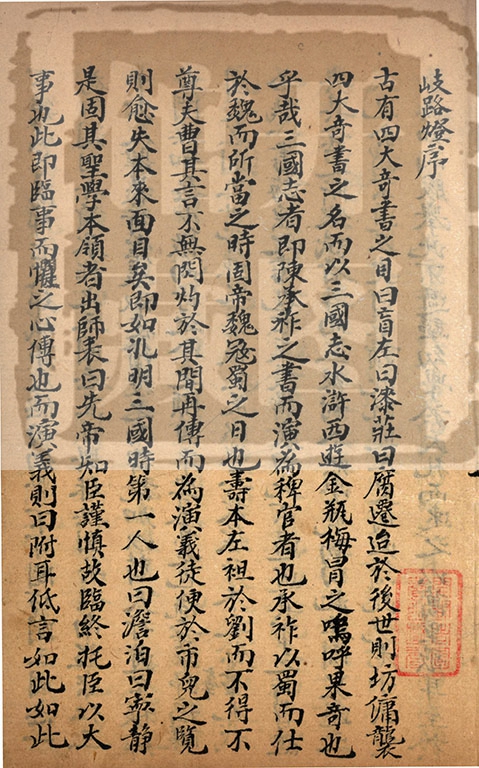 岐路燈序
古有四大奇書之目曰盲左曰漆莊曰腐遷迨於後世則坊傭襲
四大奇書之名而以三國志水滸西遊金瓶梅冒之嗚呼果奇也
乎哉三國志者即陳承祚之書而演為稗官者也承祚以蜀而仕
於魏而所當之時固帝魏冦蜀之日也壽本左袒於劉而不得不
尊夫曹其言不無閃灼於其間再傳而為演義徒便於市兒之覽
則愈失本來面目矣即如孔明三國時第一人也曰澹泊曰寧靜
是固其聖學本領者出師表曰先帝知臣謹慎故臨終托臣以大
事也此即臨事而懼之心傳也而演義則曰附耳低言如此如此